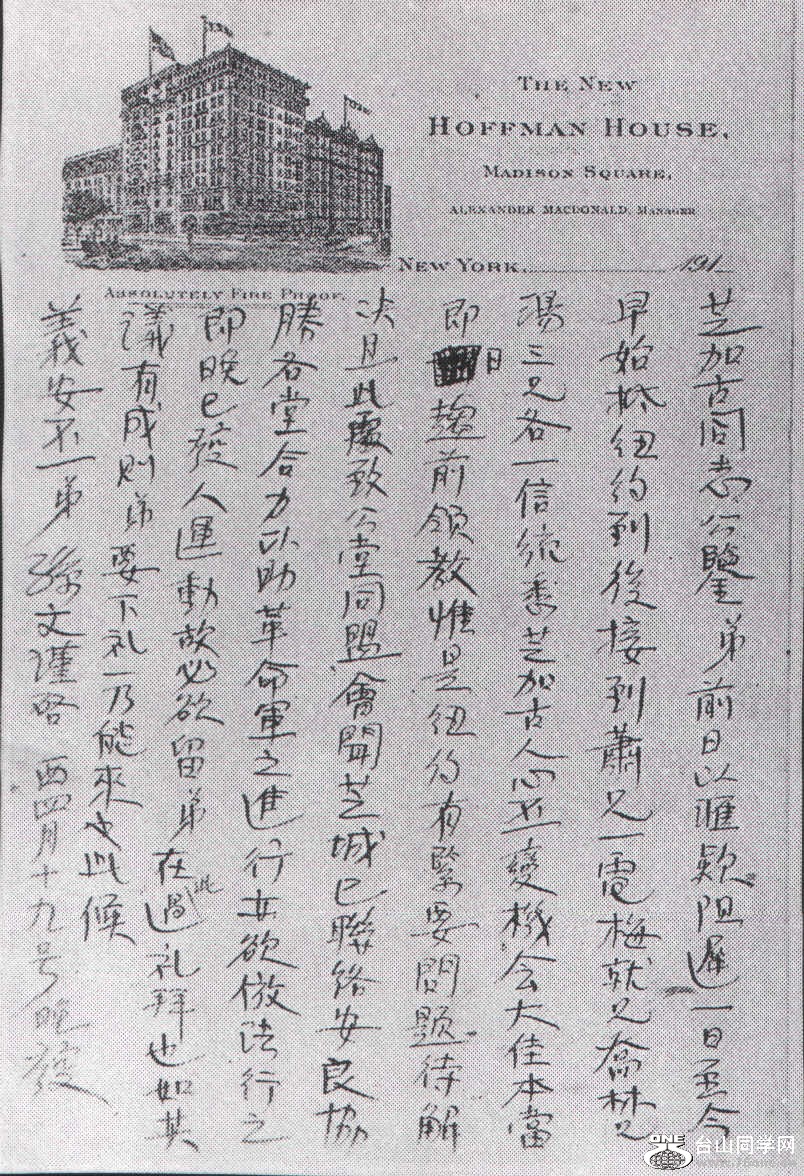 THE NEW
HOFFMAN HOUSE,
MADISON SQUARE,
ALEXANDER MACDONALD, MANAGER
NEW YORK, 191
ABSOLUTELY FIRE PROOF.
芝加古同志公鑒弟前日以匯欵阻遲一日至今
早始抵紐約到後接到蕭兄一電梅就兄喬林兄
湯三兄各一信統悉芝加古人心丕變機会大佳本當
即日趨前領教惟是紐約有緊要問題待解
决且此處致公堂同盟會聞芝城已聯絡安良協
勝各堂合力以助革命軍之進行甚欲倣法行之
即晚已發人運動故必欲留弟在此過礼拜也如其
議有成則弟要下礼一乃能來也此候
義安不一弟孫文謹啓 西四月十九号晚發
ONE 台山同学网